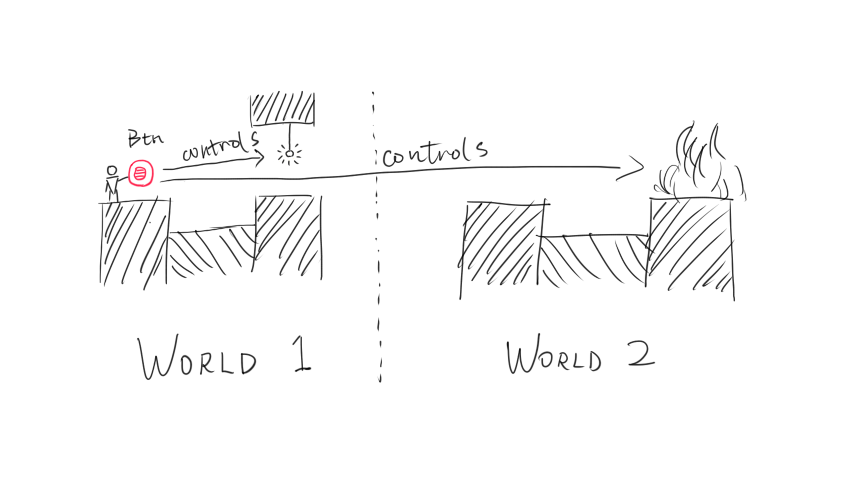 Btn
controls
controls
WORLD 1
WORLD 2